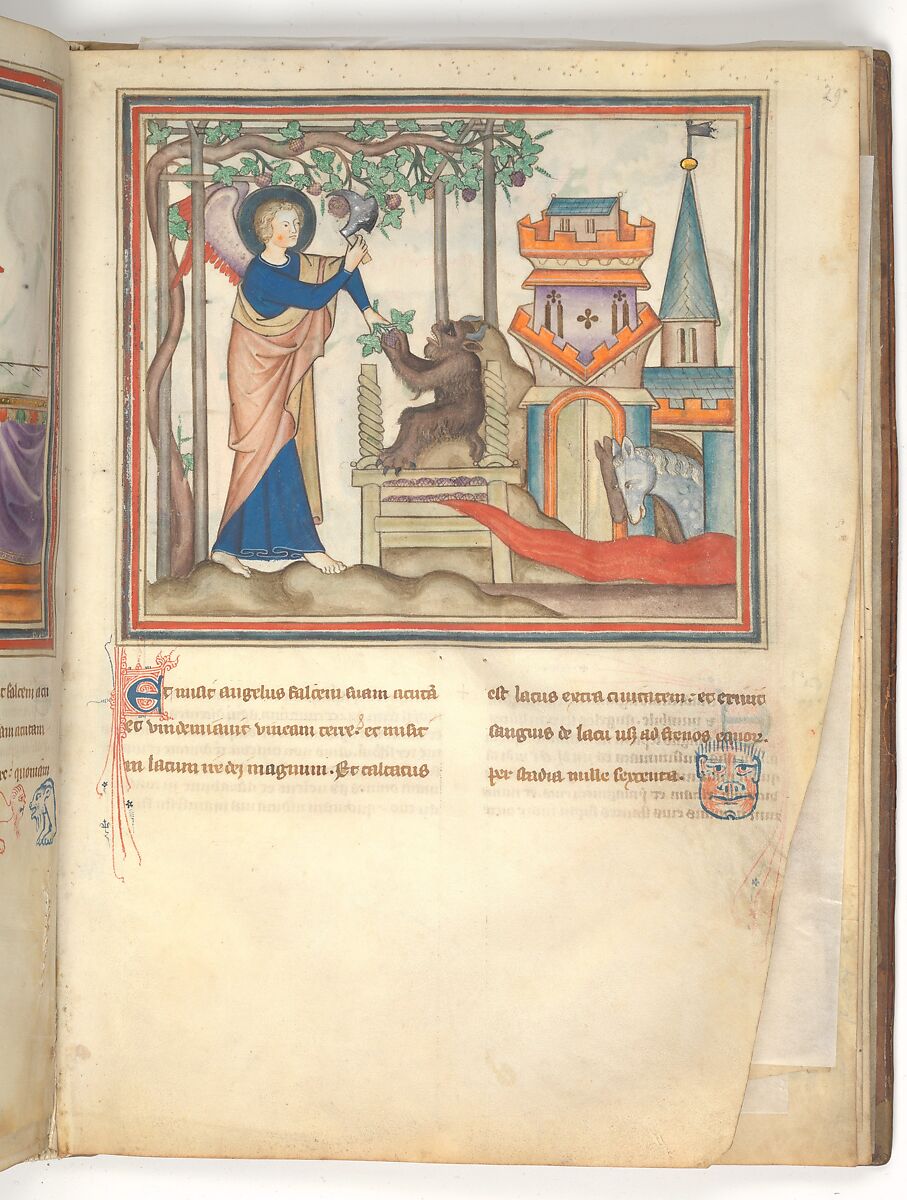 29
Et misit angelus falcem suam acutā
et vindemiauit vineam terre: et misit
in lacum ire dei magnum. Et calcatus
est lacus extra ciuitatem: et exiuit
sanguis de lacu usq; ad frenos equor.
per stadia mille sexcenta.
t falcem acu
am acutam
re: quoniam